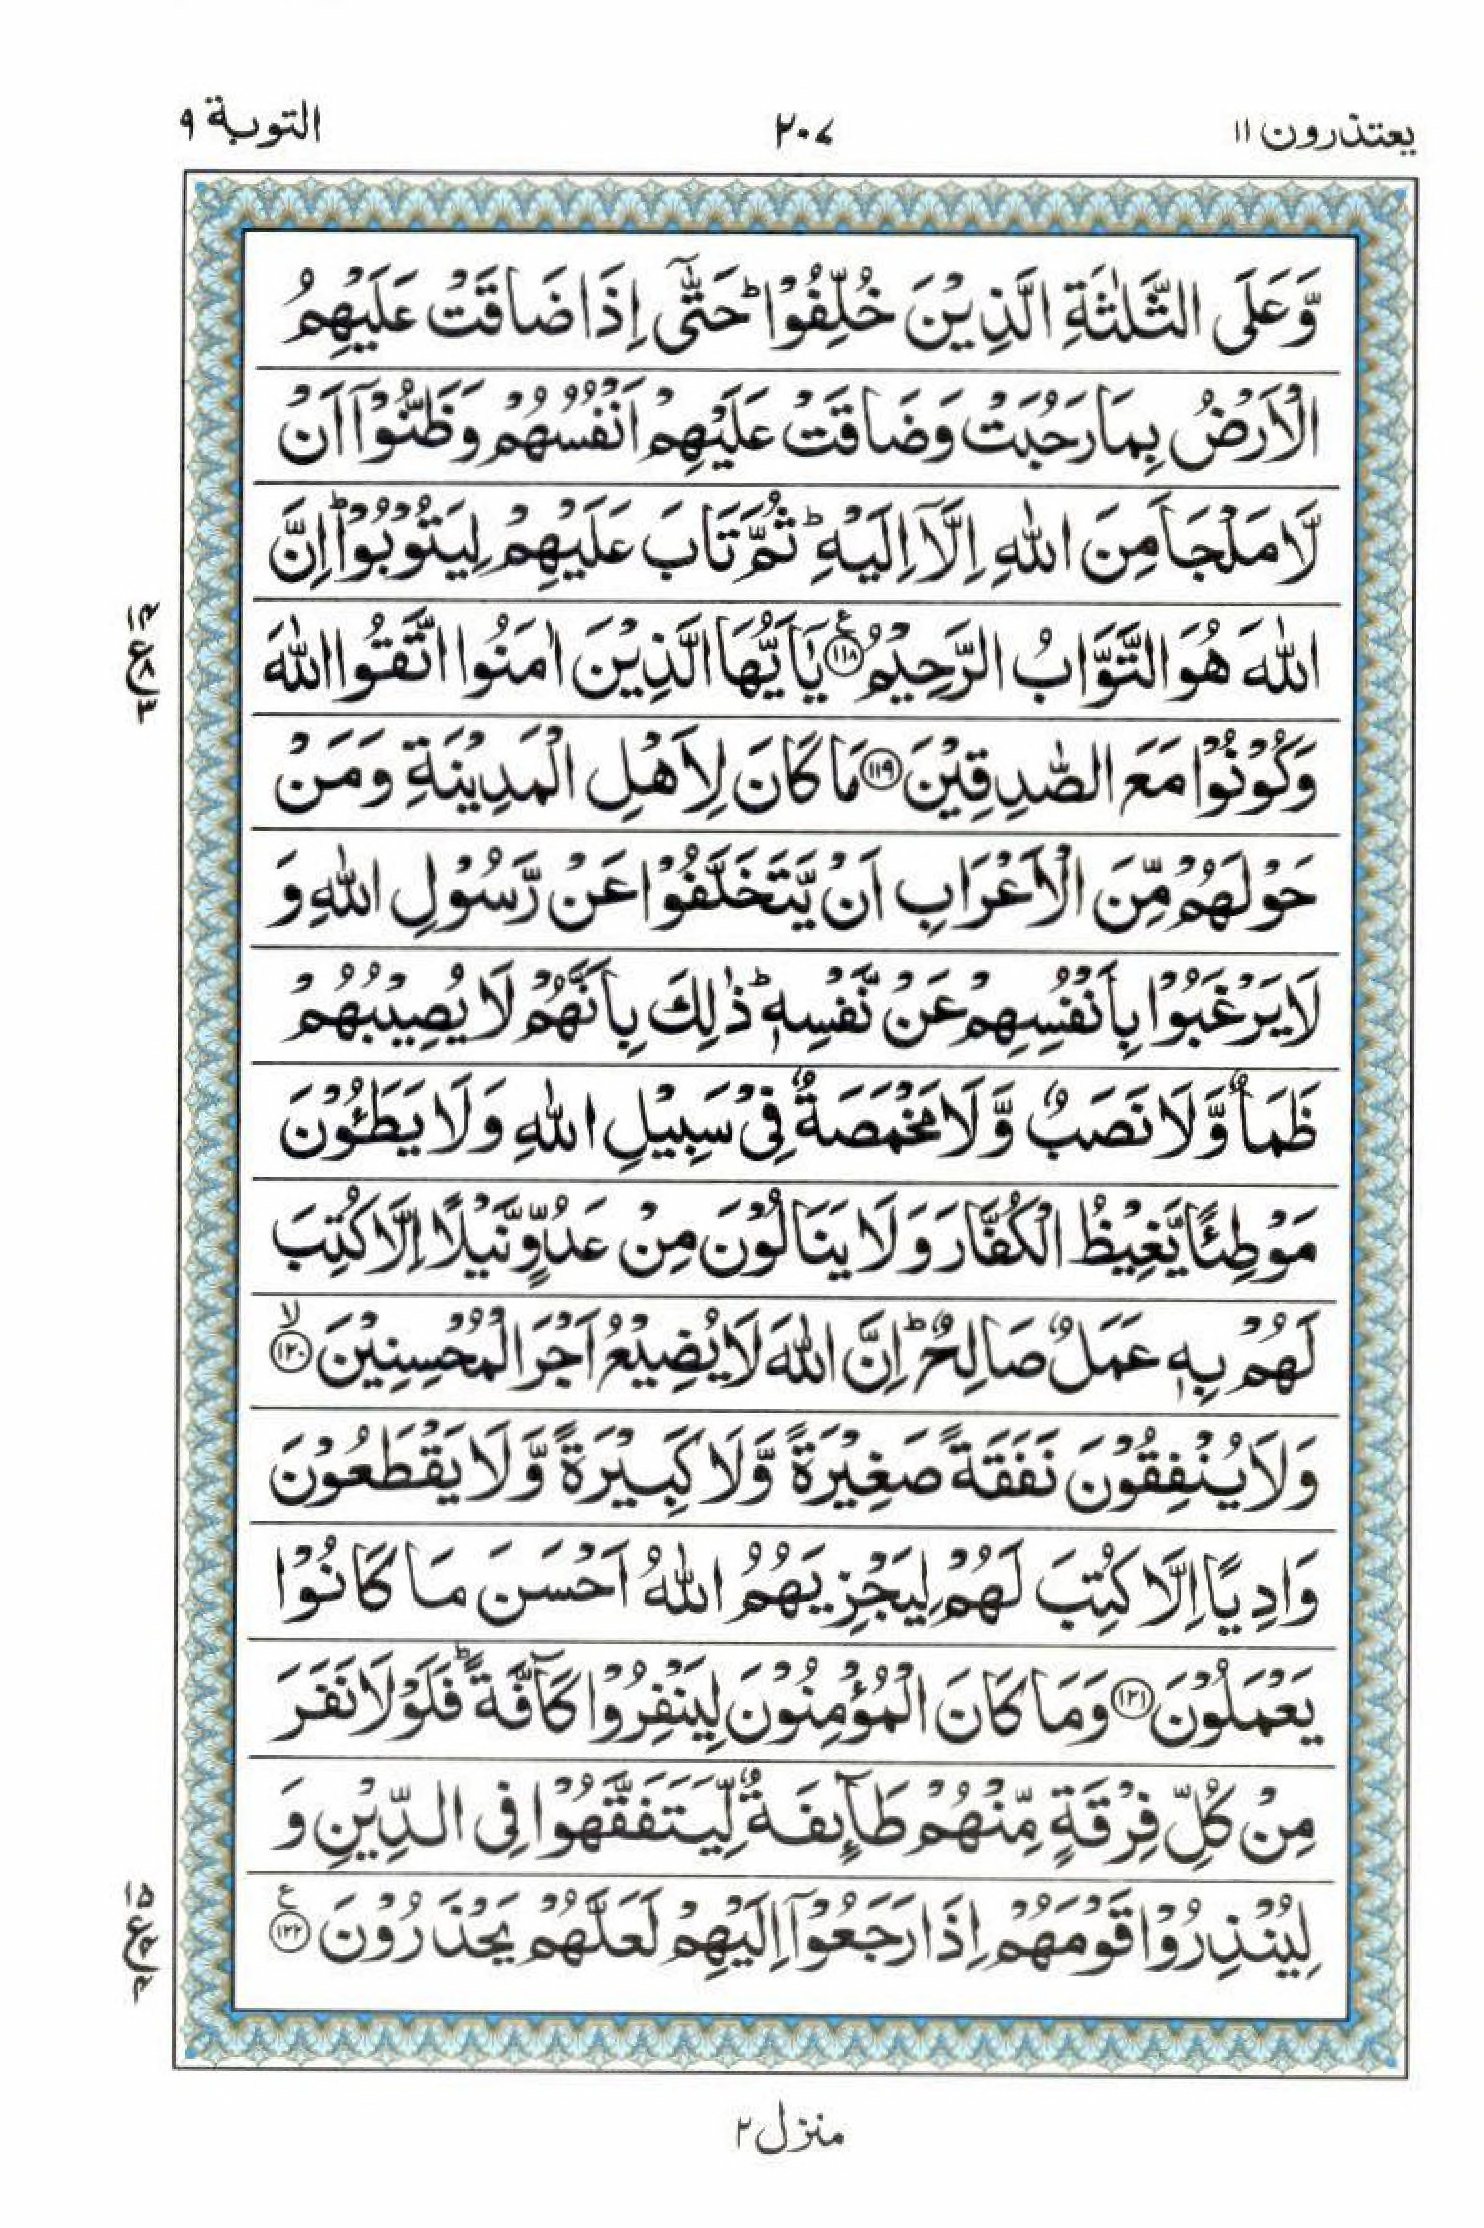 يعتذرون ١١
٢٠٧
التوبة ٩
وَّعَلَى الثَّلٰثَةِ الَّذِيْنَ خُلِّفُوْا ؕ حَتّٰۤى اِذَا ضَاقَتْ عَلَيْهِمُ
الْاَرْضُ بِمَا رَحُبَتْ وَضَاقَتْ عَلَيْهِمْ اَنْفُسُهُمْ وَظَنُّوْۤا اَنْ
لَّا مَلْجَاَ مِنَ اللّٰهِ اِلَّاۤ اِلَيْهِ ؕ ثُمَّ تَابَ عَلَيْهِمْ لِيَتُوْبُوْا ؕ اِنَّ
اللّٰهَ هُوَ التَّوَّابُ الرَّحِيْمُ ﴿١١٨﴾ ع يٰۤاَيُّهَا الَّذِيْنَ اٰمَنُوا اتَّقُوا اللّٰهَ
١٤ ع ٨ ٣
وَكُوْنُوْا مَعَ الصّٰدِقِيْنَ ﴿١١٩﴾ مَا كَانَ لِاَهْلِ الْمَدِيْنَةِ وَمَنْ
حَوْلَهُمْ مِّنَ الْاَعْرَابِ اَنْ يَّتَخَلَّفُوْا عَنْ رَّسُوْلِ اللّٰهِ وَ
لَا يَرْغَبُوْا بِاَنْفُسِهِمْ عَنْ نَّفْسِهٖ ؕ ذٰلِكَ بِاَنَّهُمْ لَا يُصِيْبُهُمْ
ظَمَاٌ وَّلَا نَصَبٌ وَّلَا مَخْمَصَةٌ فِيْ سَبِيْلِ اللّٰهِ وَلَا يَطَـُٔوْنَ
مَوْطِئًا يَّغِيْظُ الْكُفَّارَ وَلَا يَنَالُوْنَ مِنْ عَدُوٍّ نَّيْلًا اِلَّا كُتِبَ
لَهُمْ بِهٖ عَمَلٌ صَالِحٌ ؕ اِنَّ اللّٰهَ لَا يُضِيْعُ اَجْرَ الْمُحْسِنِيْنَ ﴿١٢٠﴾ لا
وَلَا يُنْفِقُوْنَ نَفَقَةً صَغِيْرَةً وَّلَا كَبِيْرَةً وَّلَا يَقْطَعُوْنَ
وَادِيًا اِلَّا كُتِبَ لَهُمْ لِيَجْزِيَهُمُ اللّٰهُ اَحْسَنَ مَا كَانُوْا
يَعْمَلُوْنَ ﴿١٢١﴾ وَمَا كَانَ الْمُؤْمِنُوْنَ لِيَنْفِرُوْا كَآفَّةً ؕ فَلَوْلَا نَفَرَ
مِنْ كُلِّ فِرْقَةٍ مِّنْهُمْ طَآئِفَةٌ لِّيَتَفَقَّهُوْا فِي الدِّيْنِ وَ
لِيُنْذِرُوْا قَوْمَهُمْ اِذَا رَجَعُوْۤا اِلَيْهِمْ لَعَلَّهُمْ يَحْذَرُوْنَ ﴿١٢٢﴾ ع
١٥ ع ٤ ٤
منزل ٢